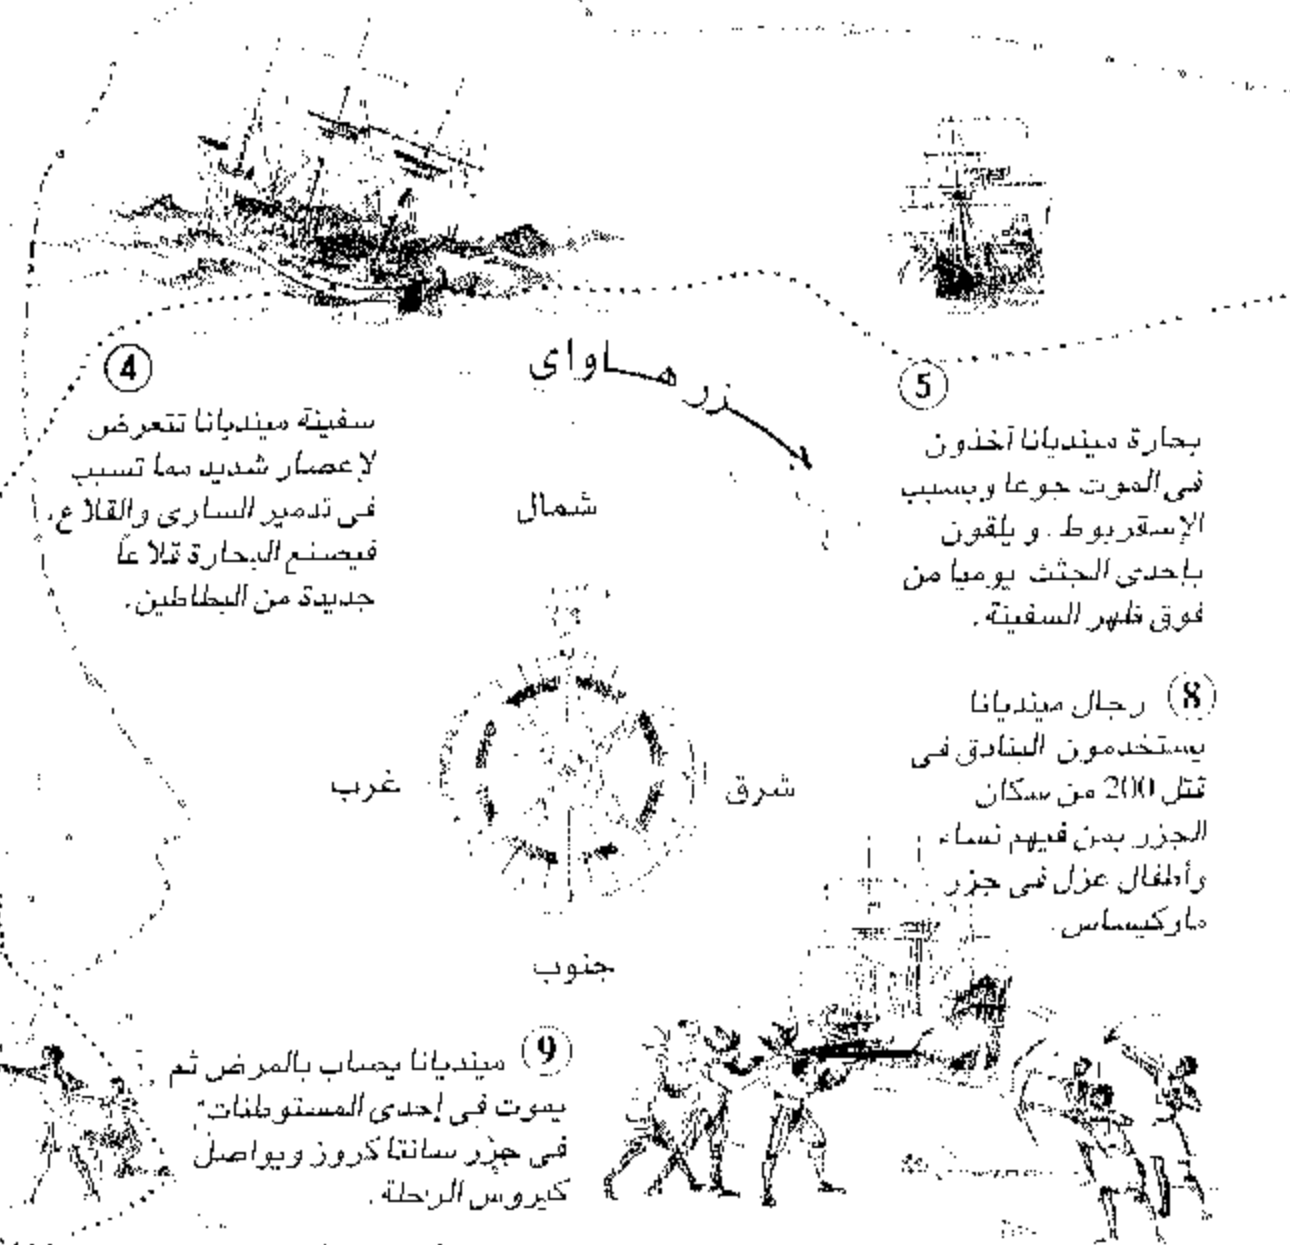 جزر هاواى
4
سفينة مينديانا تتعرض
لإعصار شديد مما تسبب
فى تدمير السارى والقلاع،
فيصنع البحارة قلاعاً
جديدة من البطاطين.
5
بحارة مينديانا آخذون
فى الموت جوعا وبسبب
الإسقربوط. ويلقون
بإحدى الجثث يوميا من
فوق ظهر السفينة.
شمال
غرب
شرق
جنوب
8 رجال مينديانا
يستخدمون البنادق فى
قتل 200 من سكان
الجزر بمن فيهم نساء
وأطفال عزل فى جزر
ماركيساس.
9 مينديانا يصاب بالمرض ثم
يموت فى إحدى المستوطنات
فى جزر سانتا كروز ويواصل
كيروس الرحلة.